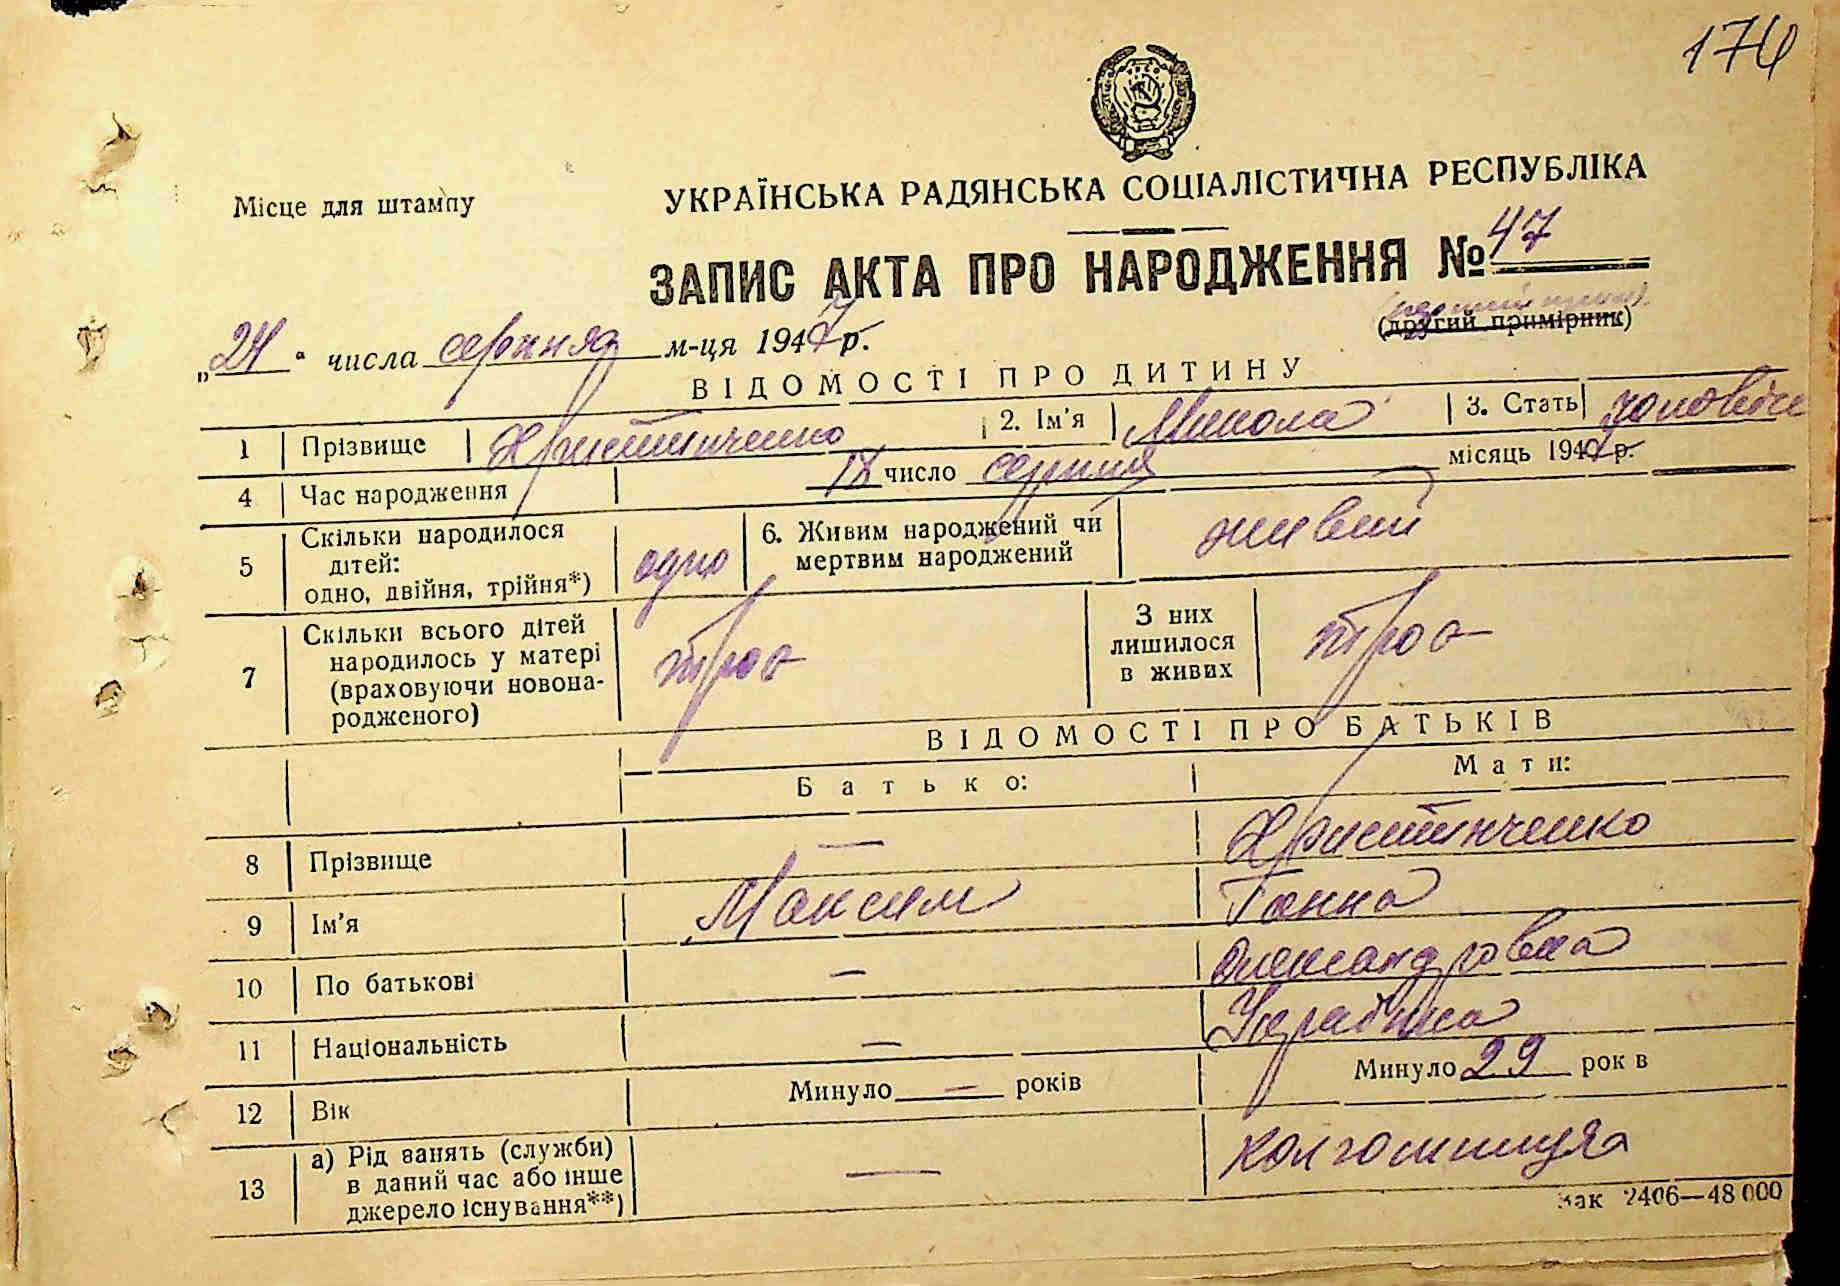 174
Місце для штампу
УКРАЇНСЬКА РАДЯНСЬКА СОЦІАЛІСТИЧНА РЕСПУБЛІКА
ЗАПИС АКТА ПРО НАРОДЖЕННЯ № 47
(другий примірник)
„24" числа серпня м-ця 1947 р.
ВІДОМОСТІ ПРО ДИТИНУ
1 Прізвище Христинченко 2. Ім'я Микола 3. Стать
4 Час народження 18 число серпня місяць 1947 р.
5 Скільки народилося дітей: одно, двійня, трійня*) одно 6. Живим народжений чи мертвим народжений живий
7 Скільки всього дітей народилось у матері (враховуючи новонародженого) троє З них лишилося в живих троє
ВІДОМОСТІ ПРО БАТЬКІВ
Батько: Мати:
8 Прізвище — Христинченко
9 Ім'я Максим Ганна
10 По батькові — Олександровна
11 Національність — Українка
12 Вік Минуло — років Минуло 29 рок в
13 а) Рід занять (служби) в даний час або інше джерело існування**) — колгоспниця
Зак 2406—48 000